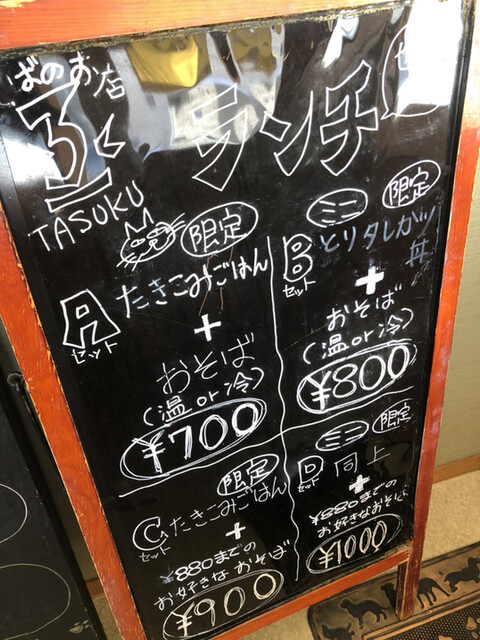 ばのお店
TASUKU
ランチ
限定
Aセット
たきこみごはん
+
おそば
(温or冷)
¥700
ミニ
限定
Bセット
とりタレカツ
丼
+
おそば
(温or冷)
¥800
限定
Cセット
たきこみごはん
+
¥880までの
お好きなおそば
¥900
ミニ
限定
Dセット
同上
+
¥880までの
お好きなおそば
¥1000